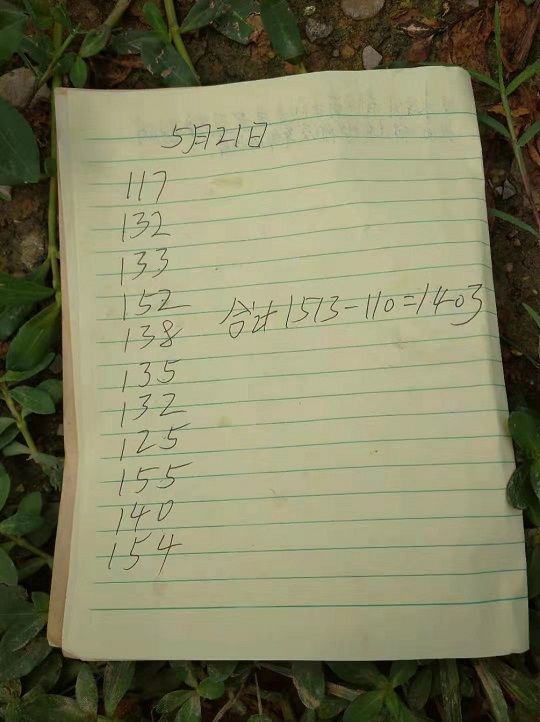 5月21日
117
132
133
152
合计1513-110=1403
138
135
132
125
155
140
154